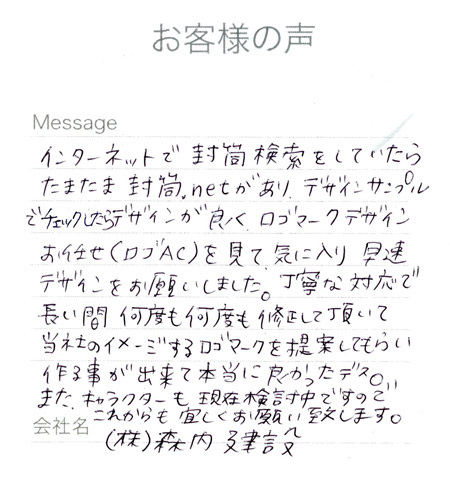 お客様の声
Message
インターネットで封筒検索をしていたら
たまたま封筒.netがあり、デザインサンプル
でチェックしたらデザインが良く、ロゴマークデザイン
お任せ(ロゴAC)を見て、気に入り 早速
デザインをお願いしました。丁寧な対応で
長い間 何度も何度も修正して頂いて
当社のイメージするロゴマークを提案してもらい
作る事が出来て本当に良かったデス。
また、キャラクターも現在検討中ですので
これからも宜しくお願い致します。
会社名
(株)森内建設